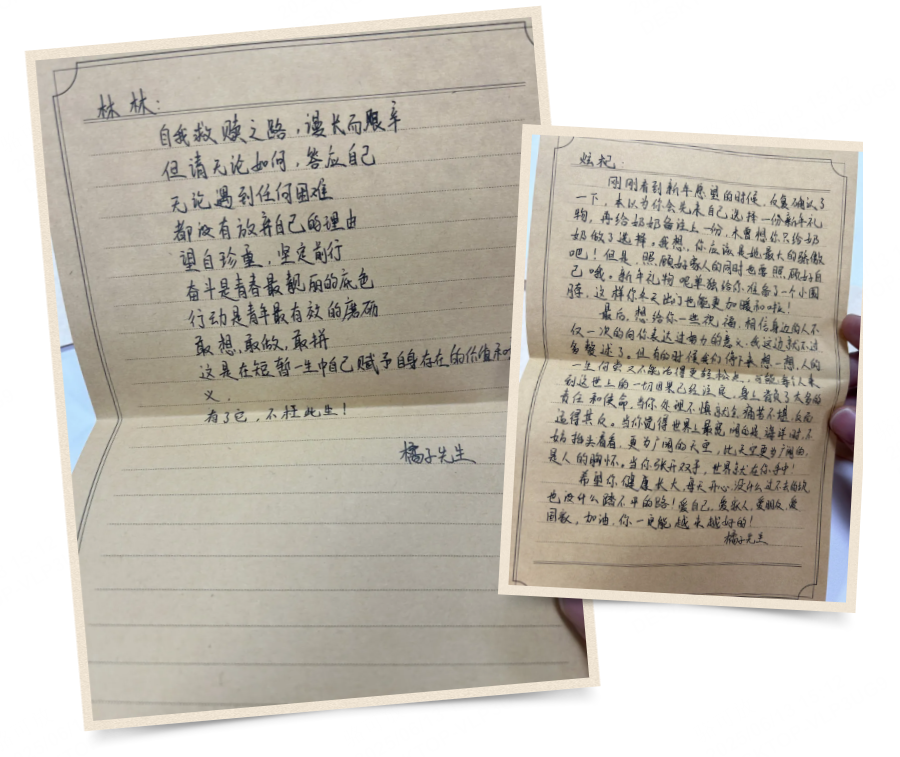 林林：
自我救赎之路，漫长而艰辛
但请无论如何，答应自己
无论遇到任何困难
都没有放弃自己的理由
望自珍重，坚定前行
奋斗是青春最靓丽的底色
行动是青年最有效的磨砺
敢想，敢做，敢拼
这是在短暂一生中自己赋予自身存在的价值和
义。
有了它，不枉此生！
橘子先生
炫杞：
刚刚看到新年愿望的时候，反复确认了
一下，本以为你会先来自己选择一份新年礼
物，再给奶奶备注上一份，未曾想你只给奶
奶做了选择，我想，你应该是她最大的骄傲
吧！但是，照顾好家人的同时也要照顾好自
己哦。新年礼物呢单独给你准备了一个小围
脖，这样你冬天出门也能更加暖和啦！
最后，想给你一些祝福，相信身边的人不
仅一次的向你表达过努力的意义，我这边就不过
多赘述了。但有的时候我们停下来想一想，人的
一生何尝又不能活得更轻松点，
到这世上的一切因果已经注定，身上背负了太多的
责任和使命，当你处理不慎就会痛苦不堪，反而
适得其反。当你觉得世界上最宽阔的是海洋时，不
妨抬头看看，更为广阔的天空，比天空更为广阔的，
是人的胸怀。当你张开双手，世界就在你手中！
希望你健康长大，每天开心，没什么过不去的坎
也没什么踏不平的路！爱自己，爱家人，爱朋友，爱
国家，加油，你一定能越来越好的！
橘子先生